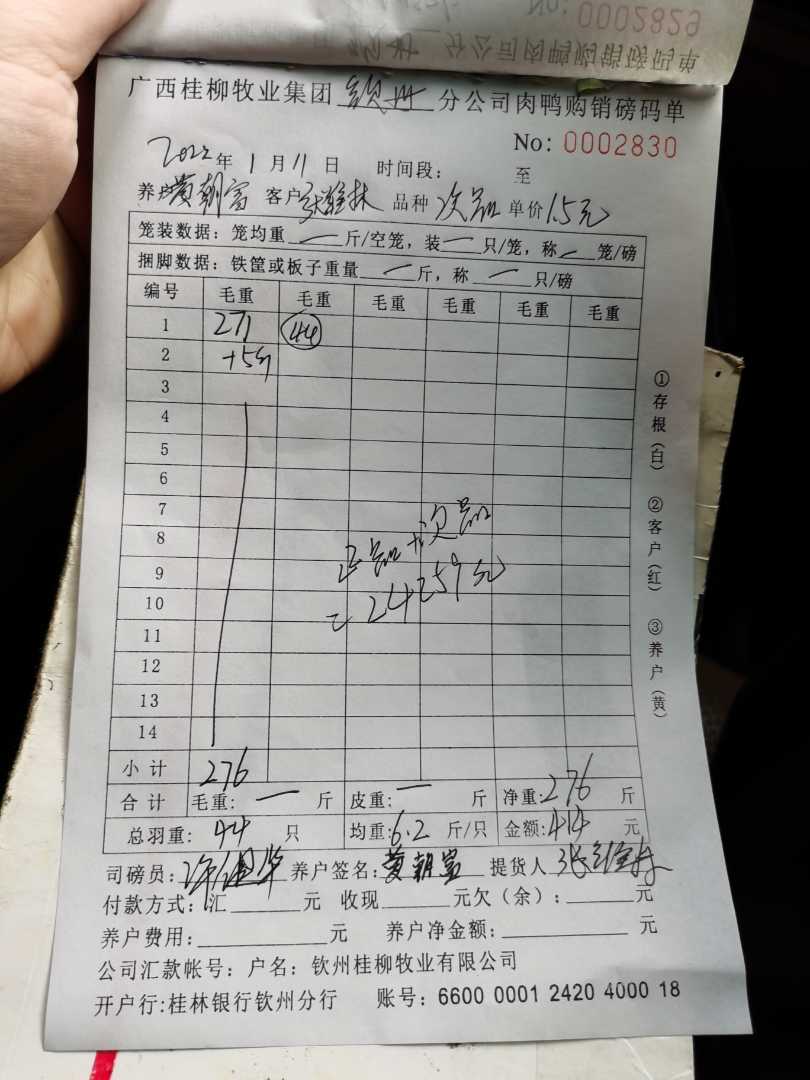 No: 0002829
分公司肉鸭购销磅码单
广西桂柳牧业集团 钦州 分公司肉鸭购销磅码单
No: 0002830
2022年 1月 11日 时间段: 至
养户黄朝富 客户 品种 次品 单价 1.5元
笼装数据: 笼均重 — 斤/空笼, 装 — 只/笼, 称 — 笼/磅
捆脚数据: 铁筐或板子重量 — 斤, 称 — 只/磅
编号 毛重 毛重 毛重 毛重 毛重 毛重
1 271 44
2 +5斤
3
4
5
6
7
8
9
10
11
12
13
14
正品+次品
=24259元
小计 276
合计 毛重: — 斤 皮重: — 斤 净重: 276 斤
总羽重: 44 只 均重: 6.2 斤/只 金额: 414 元
司磅员: 养户签名: 黄朝富 提货人
付款方式: 汇 元 收现 元欠（余）: 元
养户费用: 元 养户净金额: 元
公司汇款帐号: 户名: 钦州桂柳牧业有限公司
开户行:桂林银行钦州分行 账号: 6600 0001 2420 4000 18
①存根(白) ②客户(红) ③养户(黄)